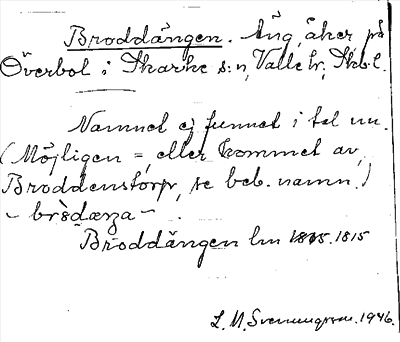 Broddängen. Äng, åker, på
Överbol i Skarke s:n, Valle hr, Skb.l.
Namnet ej funnet i tal nu.
(Möjligen =, eller kommet av,
Broddenstorp, se beb. namn.)
- brὸdæŋa -
Broddängen lm 1815. 1815
L. M. Svenungsson. 1946.